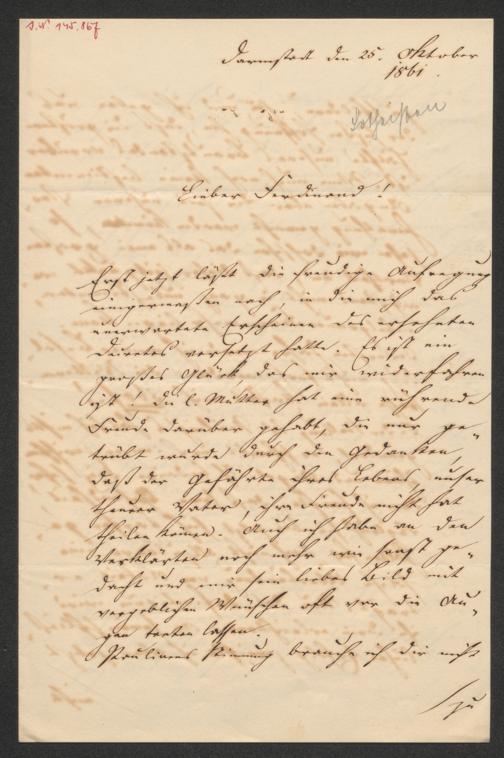 J.N. 145.867
Darmstadt den 25. Oktober
1861.
Lotheissen
Lieber Ferdinand!
Erst jetzt läßt die freudige Aufregung
einigermaßen nach, in die mich das
unerwartete Erscheinen des ersehnten
Dekretes versetzt hatte. Es ist ein
großes Glück das mir widerfahren
ist! Die l. Mutter hat eine rührende
Freude darüber gehabt, die nur ge-
trübt wurde durch den Gedanken,
daß der Gefährte ihres Lebens, unser
theurer Vater, ihre Freude nicht hat
theilen können. Auch ich habe an den
Verklärten noch mehr wie sonst ge-
dacht und mir sein liebes Bild mit
vergeblichen Wünschen oft vor die Au-
gen treten lassen.
Paulinens Stimmung brauche ich dir nicht
/zu